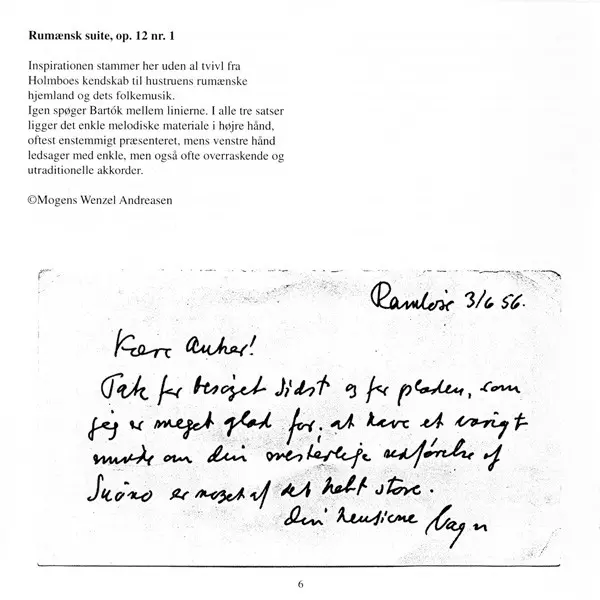 Rumænsk suite, op. 12 nr. 1
Inspirationen stammer her uden al tvivl fra
Holmboes kendskab til hustruens rumænske
hjemland og dets folkemusik.
Igen spøger Bartók mellem linierne. I alle tre satser
ligger det enkle melodiske materiale i højre hånd,
oftest enstemmigt præsenteret, mens venstre hånd
ledsager med enkle, men også ofte overraskende og
utraditionelle akkorder.
©Mogens Wenzel Andreasen
Ramløse 3/6 56.
Kære Anker!
Tak for besøget sidst og for pladen, som
jeg er meget glad for, at have et varigt
minde om din mesterlige udførelse af
Suono er noget af det helt store.
din hengivne Vagn
6